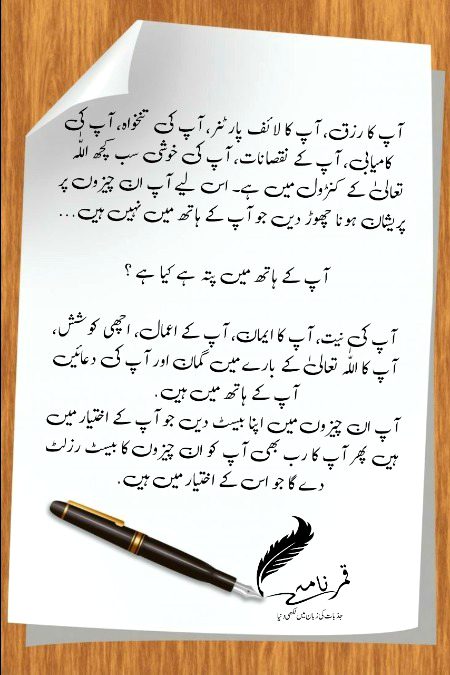 آپ کا رزق، آپ کا لائف پارٹنر، آپ کی تنخواہ، آپ کی
کامیابی، آپ کے نقصانات، آپ کی خوشی سب کچھ اللہ
تعالیٰ کے کنٹرول میں ہے۔ اس لیے آپ ان چیزوں پر
پریشان ہونا چھوڑ دیں جو آپ کے ہاتھ میں نہیں ہیں...
آپ کے ہاتھ میں پتہ ہے کیا ہے ؟
آپ کی نیت، آپ کا ایمان، آپ کے اعمال، اچھی کوشش،
آپ کا اللہ تعالیٰ کے بارے میں گمان اور آپ کی دعائیں
آپ کے ہاتھ میں ہیں.
آپ ان چیزوں میں اپنا بیسٹ دیں جو آپ کے اختیار میں
ہیں پھر آپ کا رب بھی آپ کو ان چیزوں کا بیسٹ رزلٹ
دے گا جو اس کے اختیار میں ہیں.
قمر نامہ
جذبات کی زبان میں لکھی دنیا